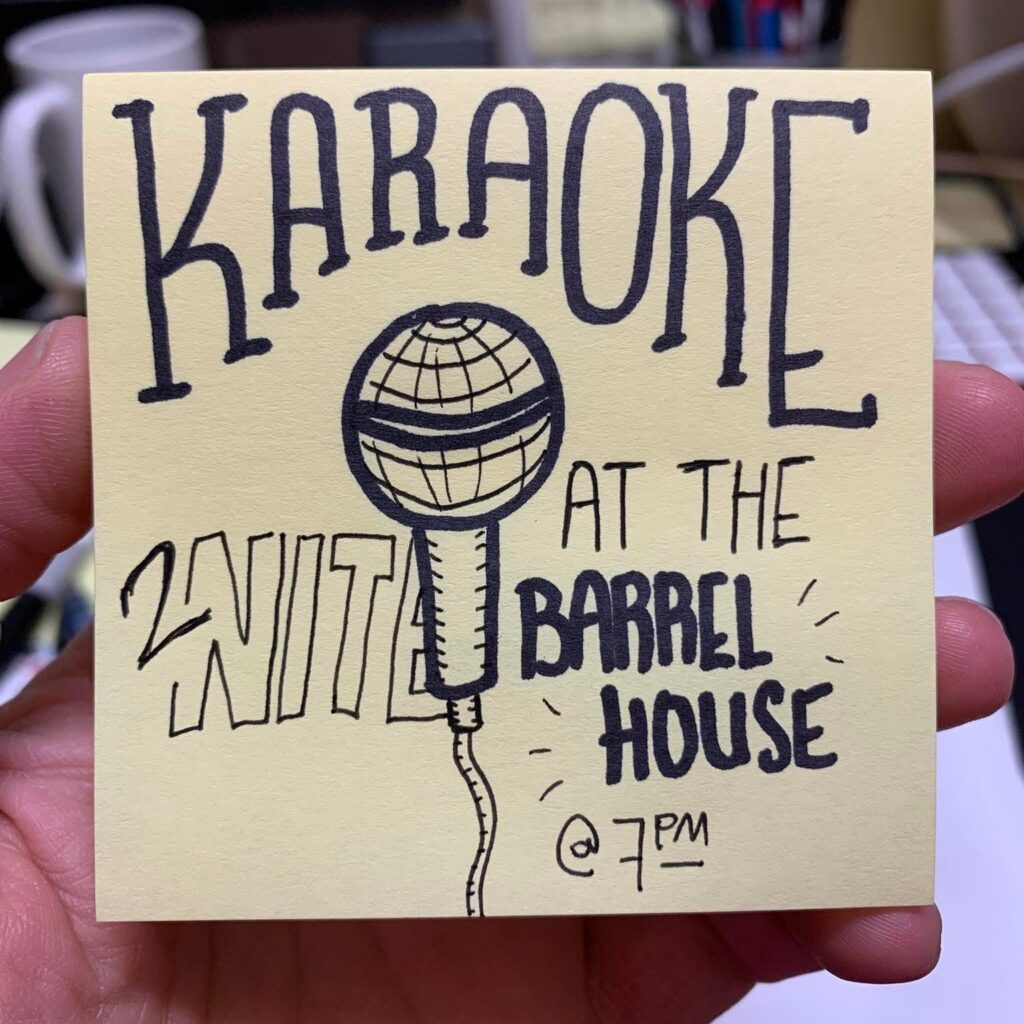 KARAOKE
2NITE
AT THE
BARREL
HOUSE
@ 7PM